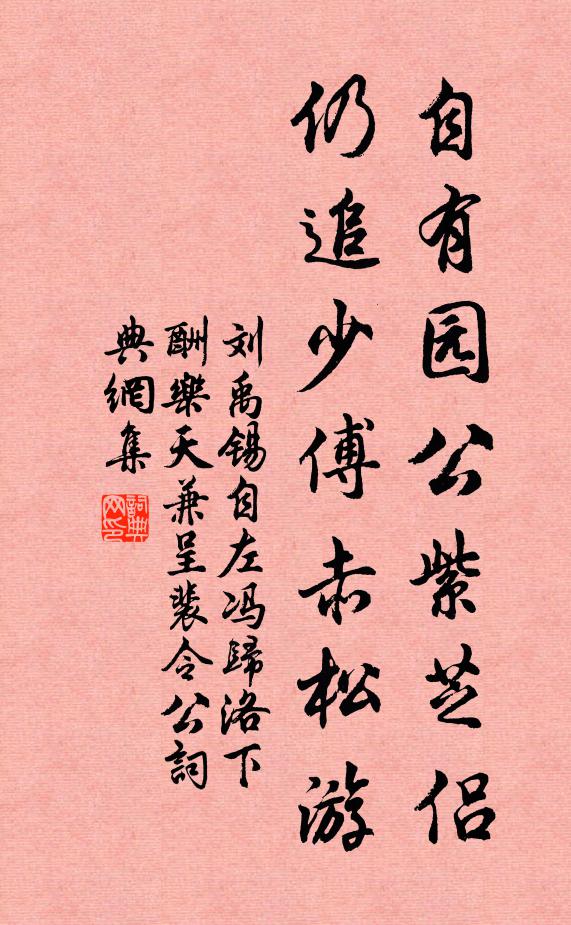 自有园公紫芝侣
仍追少傅赤松游
刘禹锡自左冯歸洛下
酬樂天兼呈裴令公詞
典網集
詞典网印